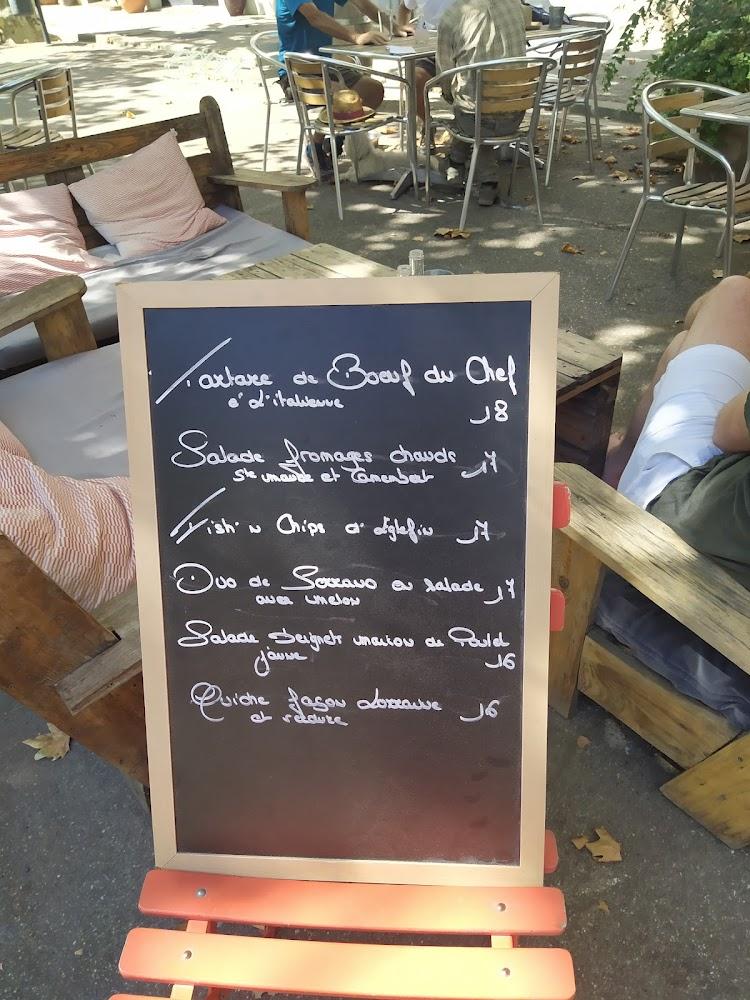 Tartare de Boeuf du Chef
à l'italienne
18
Salade fromages chauds 17
Ste maure et Camembert
Fish n Chips d'Eglefin 17
Duo de Serrano en salade 17
avec melon
Salade Beignets maison de Poulet
jaune 16
Quiche façon Lorraine 16
et verdure